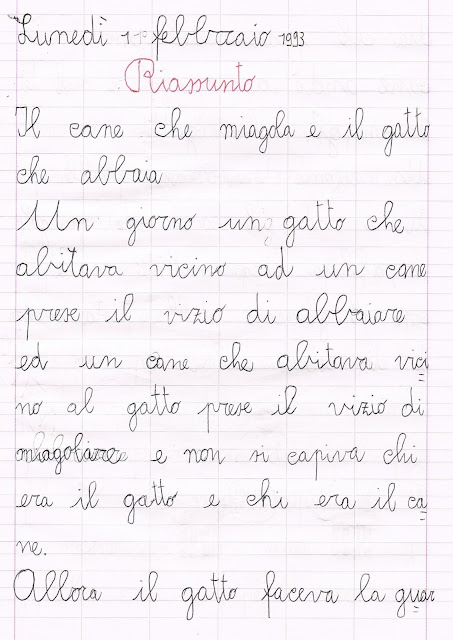 Lunedì 1 febbraio 1993
Riassunto
Il cane che miagola e il gatto
che abbaia
Un giorno un gatto che
abitava vicino ad un cane
prese il vizio di abbaiare
ed un cane che abitava vici
no al gatto prese il vizio di
miagolare e non si capiva chi
era il gatto e chi era il ca
ne.
Allora il gatto faceva la guar